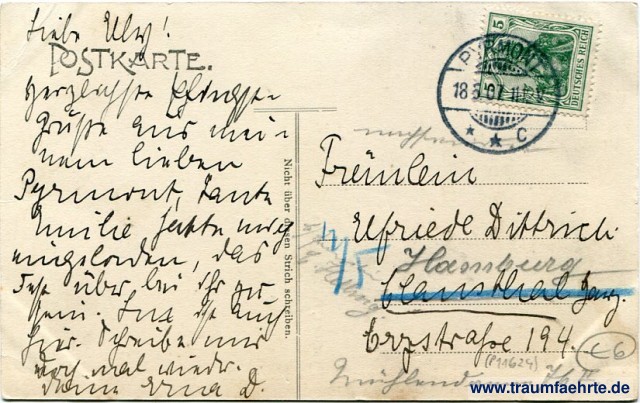 Liebe Elly!
POSTKARTE.
Herzlichste Pfingst-
grüße aus mei-
nem lieben
Pyrmont, Tante
Emilie hatte mich
eingeladen, das
Fest über bei ihr zu
sein. Erna ist auch
hier. Schreibe mir
doch mal wieder.
Deine Erna D.
Nicht über diesen Strich schreiben.
5
DEUTSCHES REICH
PYRMONT
18.5.07. 11-12 V
* * C
Fräulein
Elfriede Dittrich
Hamburg
Clausthal Harz.
Erzstraße 194.
(P11624)
€6
Mühlendamm
www.traumfaehrte.de